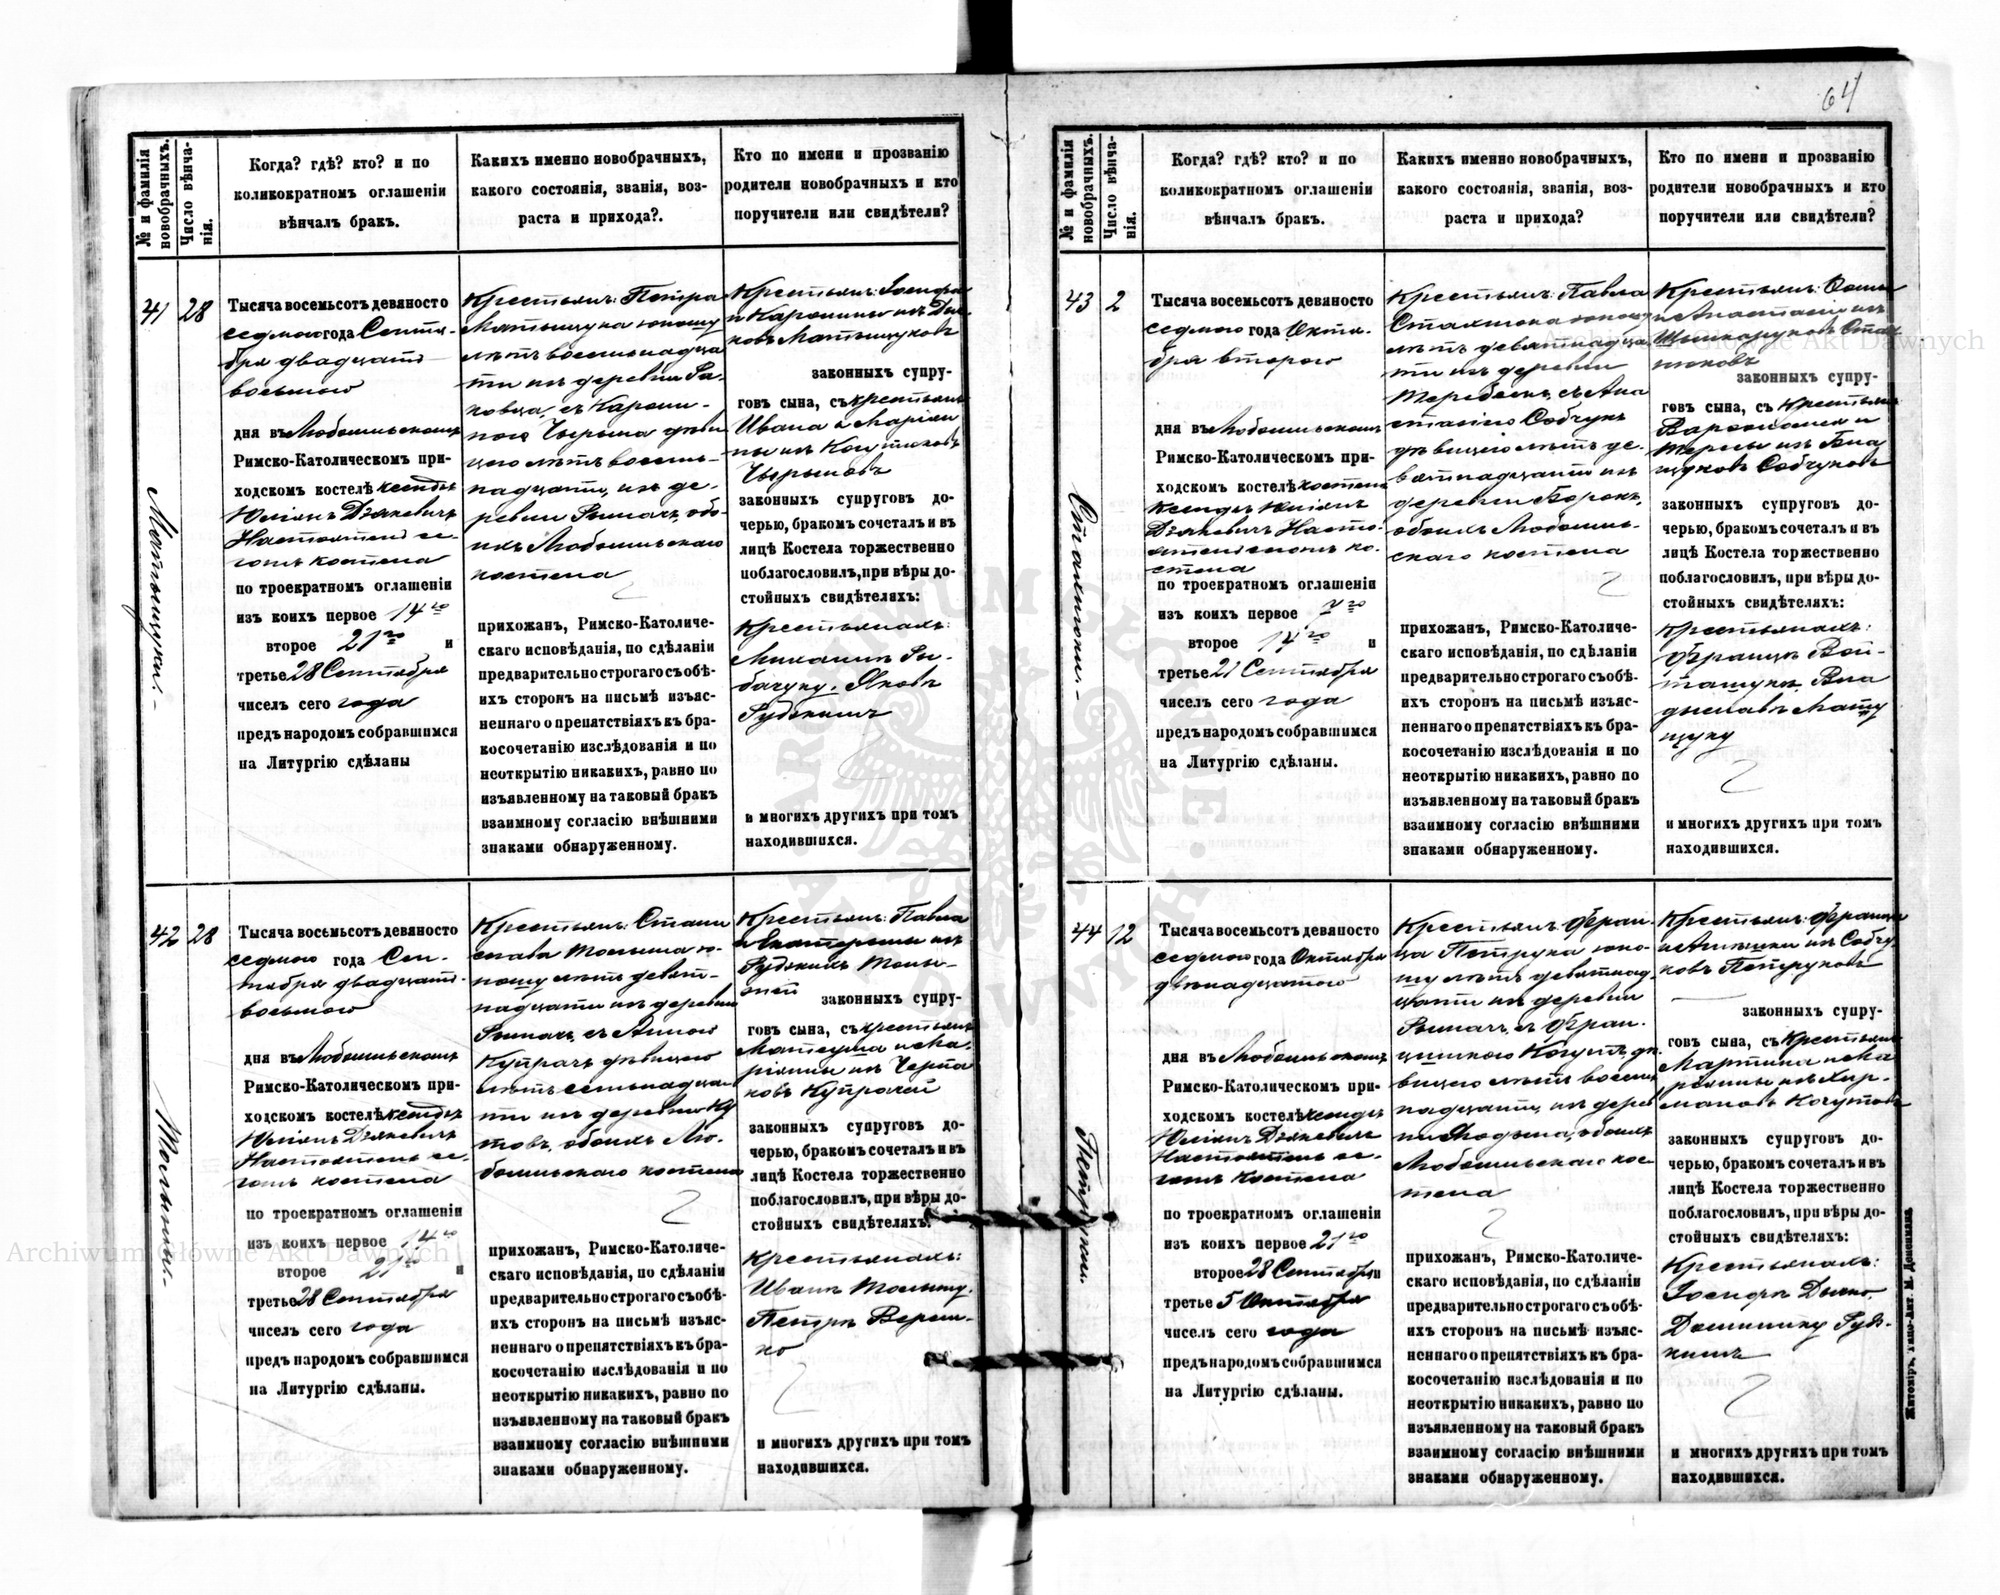 64
№ и фамилія новобрачныхъ.
Число вѣнчанія.
Когда? гдѣ? кто? и по
коликократномъ оглашеніи
вѣнчалъ бракъ.
Какихъ именно новобрачныхъ,
какого состоянія, званія, воз-
раста и прихода?.
Кто по имени и прозванію
родители новобрачныхъ и кто
поручители или свидѣтели?
41
28
Матыщуки.
Тысяча восемьсотъ девяносто
седмого года Сентя-
бря двадцать
восьмого
дня въ Любомльскомъ
Римско-Католическомъ при-
ходскомъ костелѣ ксендзъ
Юліянъ Дзякевичъ
Настоятель се-
гожъ костела
по троекратномъ оглашеніи
изъ коихъ первое 14го
второе 21го и
третье 28 Сентября
чиселъ сего года
предъ народомъ собравшимся
на Литургію сдѣланы
Крестьян: Петра
Матыщука юношу
лѣтъ восемнадца
ти изъ деревни Ра-
ковца, съ Кароли-
ною Чырыма дѣви
цею лѣтъ восем-
надцати, изъ де-
ревни Рымачъ, обо-
ихъ Любомльскаго
костела
прихожан, Римско-Католиче-
скаго исповѣданія, по сдѣланіи
предварительно строгаго съ обѣ-
ихъ сторонъ на письмѣ изъяс-
неннаго о препятствіяхъ къ бра-
косочетанію изслѣдованія и по
неоткрытію никакихъ, равно по
изъявленному на таковый бракъ
взаимному согласію внѣшними
знаками обнаруженному.
Крестьян: Іосифа
и Каролины изъ
ковъ Матыщуковъ
законныхъ супру-
говъ сына, съ крестьян
Ивана и Маріян
ны изъ
Чырымовъ
законныхъ супруговъ до-
черью, бракомъ сочеталъ и въ
лицѣ Костела торжественно
поблагословилъ, при вѣры до-
стойныхъ свидѣтеляхъ:
Крестьянахъ:
Михаилъ Ры-
бачуку, Яковъ
Рудзкимъ
и многихъ другихъ при томъ
находившихся.
42
28
Мольжи.
Тысяча восемьсотъ девяносто
седмого года Сен-
тября двадцать
восьмого
дня въ Любомльскомъ
Римско-Католическомъ при-
ходскомъ костелѣ ксендзъ
Юліянъ Дзякевичъ
Настоятель се-
гожъ костела
по троекратномъ оглашеніи
изъ коихъ первое 14го
второе 21го и
третье 28 Сентября
чиселъ сего года
предъ народомъ собравшимся
на Литургію сдѣланы.
Крестьян: Стани
слава Мольжа ю-
ношу лѣтъ девят-
надцати изъ деревни
Рымачъ, съ Анною
Купрачъ дѣвицею
лѣтъ семьнадца-
ти изъ деревни Ку
товъ, обоихъ Лю-
бомльскаго костела
прихожан, Римско-Католиче-
скаго исповѣданія, по сдѣланіи
предварительно строгаго съ обѣ-
ихъ сторонъ на письмѣ изъяс-
неннаго о препятствіяхъ къ бра-
косочетанію изслѣдованія и по
неоткрытію никакихъ, равно по
изъявленному на таковый бракъ
взаимному согласію внѣшними
знаками обнаруженному.
Крестьян: Павла
и Екатерины изъ
Рудзкихъ Моль-
жей
законныхъ супру-
говъ сына, съ крестьян
Матеуша и Ма-
ріянны изъ Черпа
ковъ Купрачей
законныхъ супруговъ до-
черью, бракомъ сочеталъ и въ
лицѣ Костела торжественно
поблагословилъ, при вѣры до-
стойныхъ свидѣтеляхъ:
Крестьянахъ:
Иванъ Мольжу,
Петръ Вереш-
ко
и многихъ другихъ при томъ
находившихся.
№ и фамилія новобрачныхъ.
Число вѣнчанія.
Когда? гдѣ? кто? и по
коликократномъ оглашеніи
вѣнчалъ бракъ.
Какихъ именно новобрачныхъ,
какого состоянія, званія, воз-
раста и прихода?
Кто по имени и прозванію
родители новобрачныхъ и кто
поручители или свидѣтели?
43
2
Стахнюки.
Тысяча восемьсотъ девяносто
седмого года Октя-
бря второго
дня въ Любомльскомъ
Римско-Католическомъ при-
ходскомъ костелѣ костела
Ксендзъ Юліянъ
Дзякевичъ Насто-
ятель сегожъ ко-
стела
по троекратномъ оглашеніи
изъ коихъ первое 7го
второе 14го и
третье 21 Сентября
чиселъ сего года
предъ народомъ собравшимся
на Литургію сдѣланы.
Крестьян: Павла
Стахнюка юношу
лѣтъ девятнадца
ти изъ деревни
Теребеекъ, съ Ана
стасіею Собчукъ
дѣвицею лѣтъ де-
вятнадцати изъ
деревни Борокъ,
обоихъ Любомль-
скаго костела
прихожан, Римско-Католиче-
скаго исповѣданія, по сдѣланіи
предварительно строгаго съ обѣ-
ихъ сторонъ на письмѣ изъяс-
неннаго о препятствіяхъ къ бра-
косочетанію изслѣдованія и по
неоткрытію никакихъ, равно по
изъявленному на таковый бракъ
взаимному согласію внѣшними
знаками обнаруженному.
Крестьян: Ѳомы
и Анастасіи изъ
Стах
нюковъ
законныхъ супру-
говъ сына, съ Крестьян
Варѳоломея и
Терезы изъ
Собчуковъ
законныхъ супруговъ до-
черью, бракомъ сочеталъ и въ
лицѣ Костела торжественно
поблагословилъ, при вѣры до-
стойныхъ свидѣтеляхъ:
Крестьянахъ:
Францъ Вой-
ташукъ, Вла
дыславъ Маты
щуку
и многихъ другихъ при томъ
находившихся.
44
12
Петруки.
Тысяча восемьсотъ девяносто
седмого года Октября
двѣнадцатого
дня въ Любомльскомъ
Римско-Католическомъ при-
ходскомъ костелѣ ксендзъ
Юліянъ Дзякевичъ
Настоятель се-
гожъ костела
по троекратномъ оглашеніи
изъ коихъ первое 21го
второе 28 Сентября и
третье 5 Октября
чиселъ сего года
предъ народомъ собравшимся
на Литургію сдѣланы.
Крестьян: Фран-
ца Петрука юно-
шу лѣтъ девятнад
цати изъ деревни
Рымачъ, съ Фран-
цишкою Когутъ дѣ
вицею лѣтъ восем
надцати, изъ дерев
ни обоихъ
Любомльскаго кос
тела
прихожан, Римско-Католиче-
скаго исповѣданія, по сдѣланіи
предварительно строгаго съ обѣ-
ихъ сторонъ на письмѣ изъяс-
неннаго о препятствіяхъ къ бра-
косочетанію изслѣдованія и по
неоткрытію никакихъ, равно по
изъявленному на таковый бракъ
взаимному согласію внѣшними
знаками обнаруженному.
Крестьян: Францa
и Агнешки изъ Собчу
ковъ Петруковъ
законныхъ супру-
говъ сына, съ Крестьян
Мартина и Ма
ріянны изъ Хур-
мановъ Когутовъ
законныхъ супруговъ до-
черью, бракомъ сочеталъ и въ
лицѣ Костела торжественно
поблагословилъ, при вѣры до-
стойныхъ свидѣтеляхъ:
Крестьянахъ:
Іосифъ
Доминику Рудз-
кимъ
и многихъ другихъ при томъ
находившихся.
Житоміръ, типо-лит. М. Дененмана
Archiwum Główne Akt Dawnych
Archiwum Główne Akt Dawnych
ARCHIWUM GŁÓWNE AKT DAWNYCH